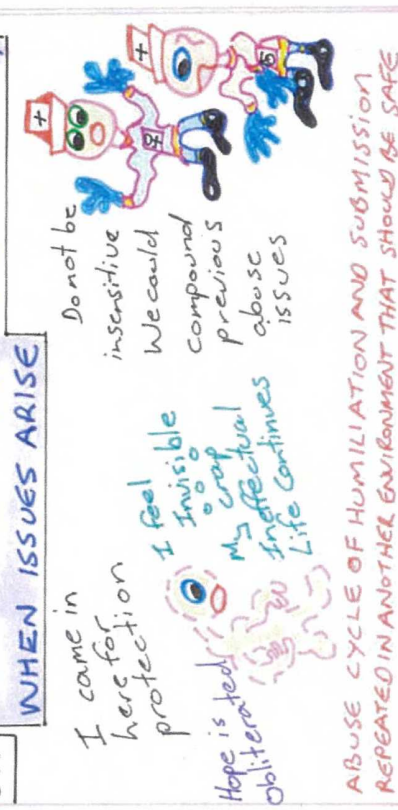 WHEN ISSUES ARISE
I came in
here for
protection
Hope is
Obliterated
I feel
Invisible
o crap
My
Ineffectual
Life Continues
Do not be
insensitive
We could
compound
previous
abuse
issues
ABUSE CYCLE OF HUMILIATION AND SUBMISSION
REPEATED IN ANOTHER ENVIRONMENT THAT SHOULD BE SAFE